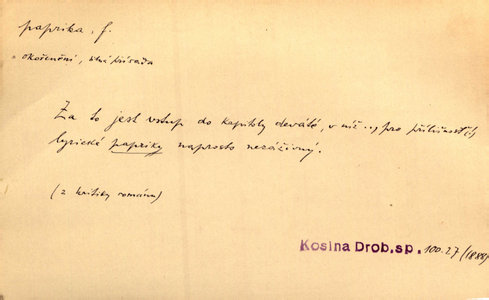 paprika, f.
okořenění, silná přísada
Za to jest vstup do kapitoly deváté, v níž..., pro přílišnost
lyrické papriky naprosto nezáživný.
(z kritiky románu)
Kosina Drob.sp. 100.27/(1884)